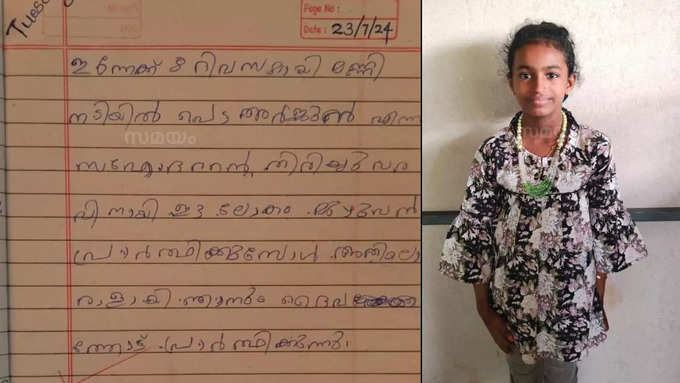 Tuesday
Page No :
Date : 23/7/24
ഇന്നേക്ക് 8 ദിവസമായി മണ്ണി
നടിയിൽ പെട്ട അർജ്ജുൻ എന്ന
സഹോദരന്റെ തിരിച്ചുവര
വിനായി ഈ ലോകം മുഴുവൻ
പ്രാർത്ഥിക്കുമ്പോൾ അതിലൊ
രാളായി ഞാനും ദൈവ
ത്തോട് പ്രാർത്ഥിക്കുന്നു.
സമയം
സമയം
സമയം